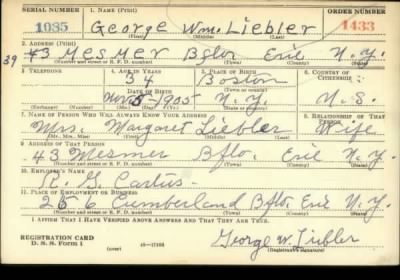 SERIAL NUMBER 1. NAME (Print) ORDER NUMBER
1085 George Wm. Liebler 1433
(First) (Middle) (Last)
2. ADDRESS (Print)
39 43 Mesmer Bflo Erie N.Y.
(Number and street or R. F. D. number) (Town) (County) (State)
3. TELEPHONE 4. AGE IN YEARS 5. PLACE OF BIRTH 6. COUNTRY OF CITIZENSHIP
34 Boston
DATE OF BIRTH (Town or county)
Nov 5 1905 N.Y. U.S.
(Exchange) (Number) (Mo.) (Day) (Yr.) (State or country)
7. NAME OF PERSON WHO WILL ALWAYS KNOW YOUR ADDRESS 8. RELATIONSHIP OF THAT PERSON
Mrs. Margaret Liebler Wife
(Mr., Mrs., Miss) (First) (Middle) (Last)
9. ADDRESS OF THAT PERSON
43 Mesmer Bflo. Erie N.Y.
(Number and street or R. F. D. number) (Town) (County) (State)
10. EMPLOYER'S NAME
11. PLACE OF EMPLOYMENT OR BUSINESS
256 Cumberland Bflo Erie N.Y.
(Number and street or R. F. D. number) (Town) (County) (State)
I AFFIRM THAT I HAVE VERIFIED ABOVE ANSWERS AND THAT THEY ARE TRUE.
REGISTRATION CARD
D. S. S. Form 1 (over) George W. Liebler
(Registrant's signature)